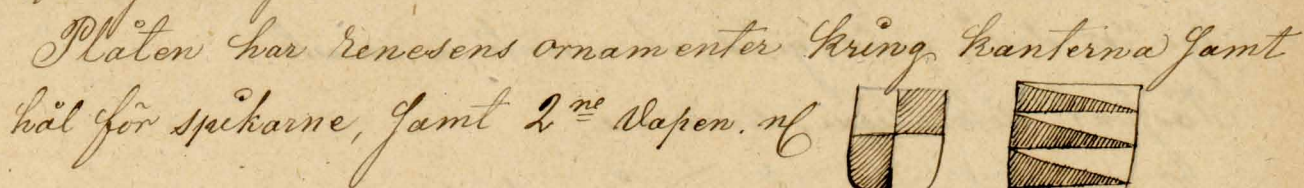 Plåten har renesens ornamenter kring kanterna Samt
hål för spikarne, Samt 2ne Vapen.